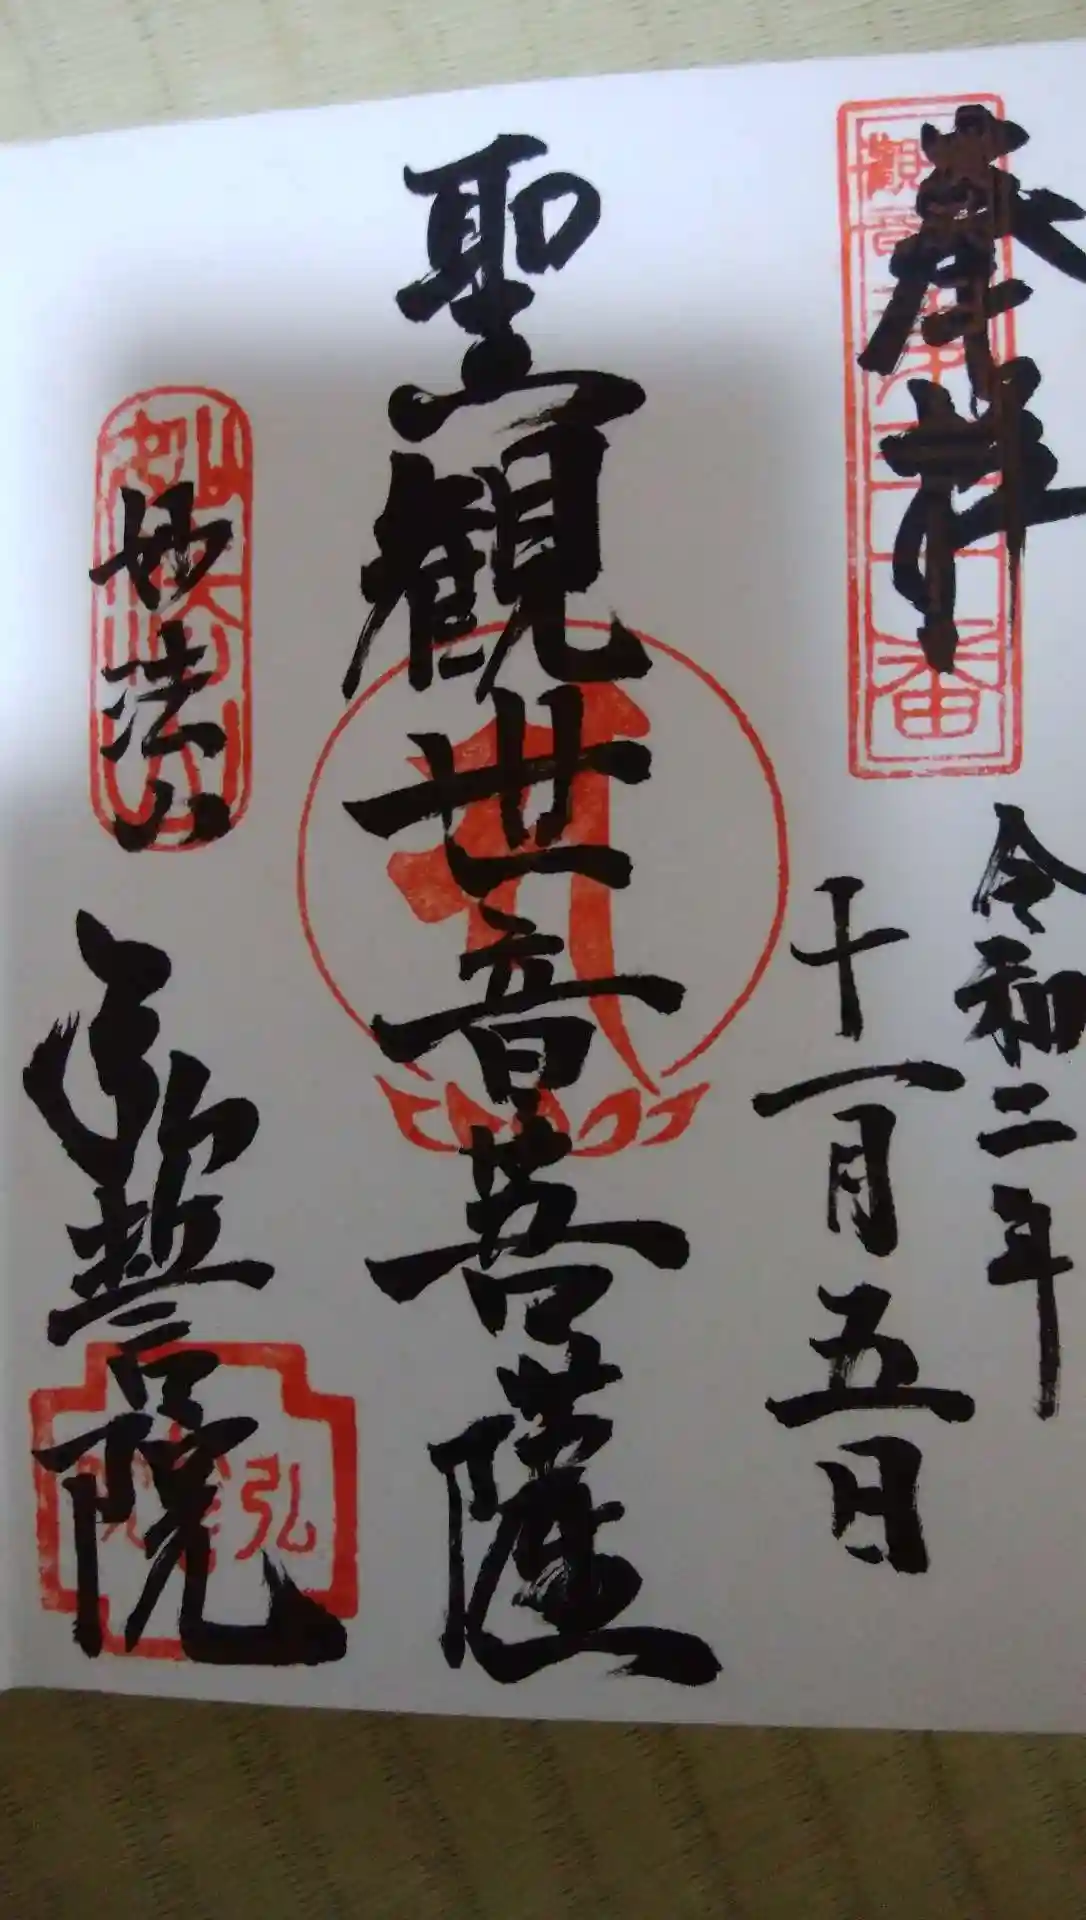 奉拝
令和二年
十一月五日
聖観世音菩薩
妙法山
弘誓院
番
弘